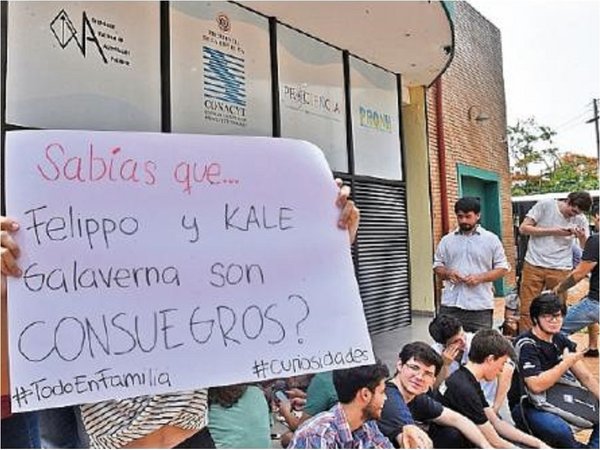 CONACYT
PROCIENCIA
PRONII
Sabías que...
Felippo y KALE
Galaverna son
CONSUEGROS?
#TodoEnFamilia
#CURIOSIDADES